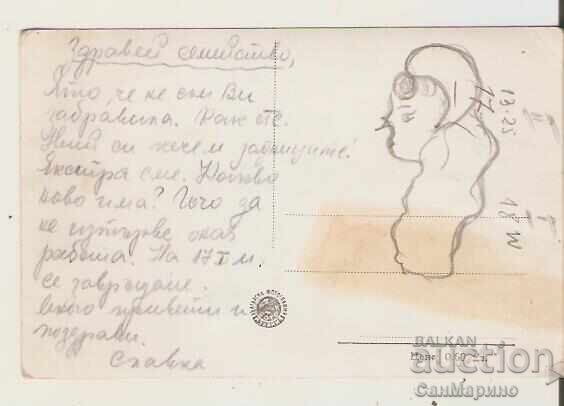 Здравей семейство,
Ято, че не съм Ви
забравила. Как сте.
Ний си печем
Екстра сме. Какво
ново има? Гочо да
не изпързве оная
работа. На 17 I м.
се завръщане.
Много привети и
поздрави.
Славка
13.25
18 W
Цена 0.60 лв.
BALKAN
auction
СанМарино